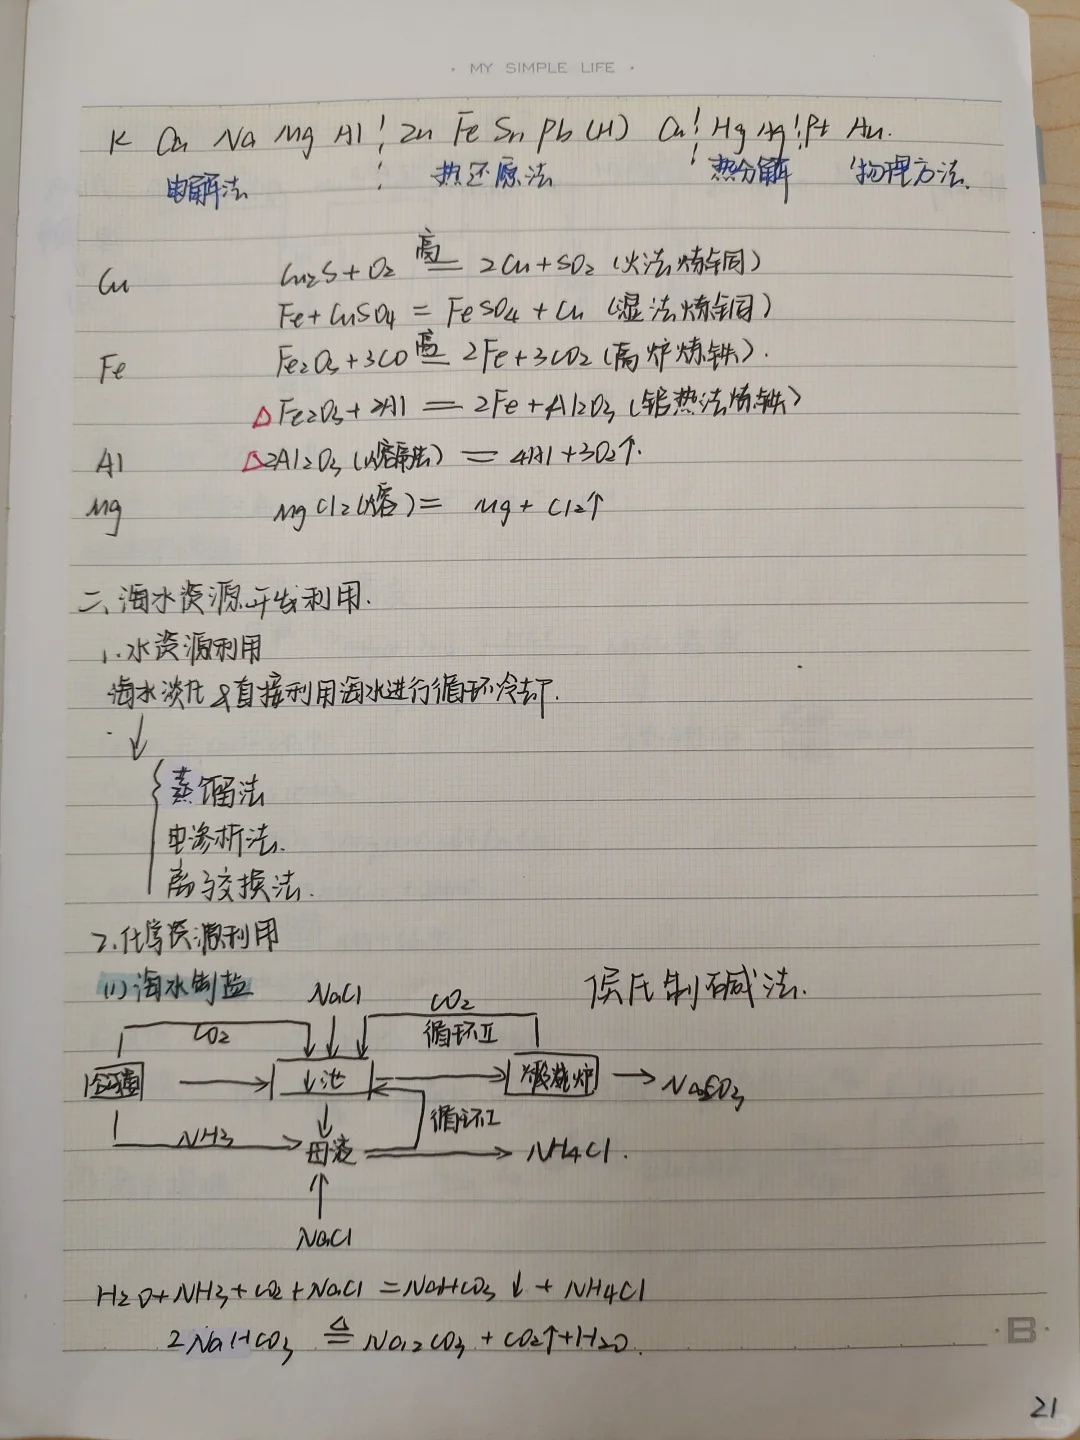 · MY SIMPLE LIFE ·
K Ca Na Mg Al Zn Fe Sn Pb (H) Cu Hg Ag Pt Au.
电解法 热还原法 热分解 物理方法.
Cu Cu2S+O2 高= 2Cu+SO2 (火法炼铜)
Fe+CuSO4 = FeSO4+Cu (湿法炼铜)
Fe Fe2O3+3CO 高= 2Fe+3CO2 (高炉炼铁).
△Fe2O3+2Al = 2Fe+Al2O3 (铝热法炼铁)
Al △2Al2O3 = 4Al+3O2↑.
Mg MgCl2(熔) = Mg+Cl2↑
二、海水资源开发利用.
1.水资源利用
海水淡化&直接利用海水进行循环冷却.
↓
蒸馏法
电渗析法.
离子交换法.
2.化学资源利用
(1)海水制盐 NaCl CO2 侯氏制碱法.
CO2 循环II
池 煅烧炉 → Na2CO3
循环I
NH3 母液 → NH4Cl.
NaCl
H2O+NH3+CO2+NaCl=NaHCO3↓+NH4Cl
2NaHCO3 △= Na2CO3+CO2↑+H2O.
·B·
21